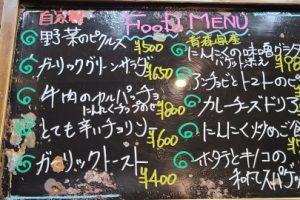 自家製
FOOD MENU
野菜のピクルス
¥500
ガーリックグリーンサラダ
¥650
牛肉のカルパッチョ
にんにくチップのせ
¥800
とても辛いチョリソー
¥600
ガーリックトースト
¥400
青森県産
にんにくの味噌
アンチョビとトマトのピ
カレーチーズドリア
にんにく炒めご
ホタテとキノコの
和風スパゲッ